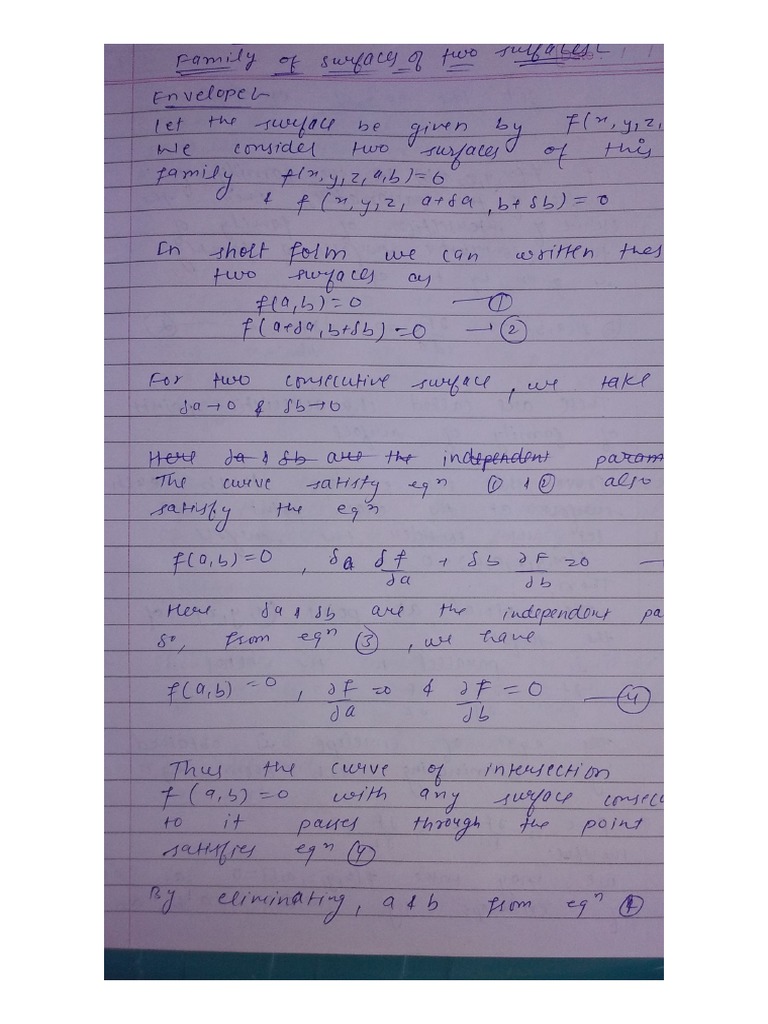 Family of surfaces of two surfaces:-
Envelope:-
Let the surface be given by f(x, y, z,
We consider two surfaces of this
family f(x, y, z, a, b) = 0
& f (x, y, z, a+δa, b+δb) = 0
In short form we can written thes
two surfaces as
f(a, b) = 0 — ①
f(a+δa, b+δb) = 0 → ②
For two consecutive surface, we take
δa→0 & δb→0
Here δa & δb are the independent param
The curve satisfy eqⁿ ① & ② also
satisfy the eqⁿ
f(a, b) = 0 , δa δf/δa + δb ∂F/δb = 0 —
Here δa & δb are the independent pa
So, from eqⁿ ③, we have
f(a, b) = 0 , ∂F/δa = 0 & ∂F/δb = 0 — ④
Thus the curve of intersection
f (a, b) = 0 with any surface consec
to it passes through the point
satisfies eqⁿ ④
By eliminating, a & b from eqⁿ ④